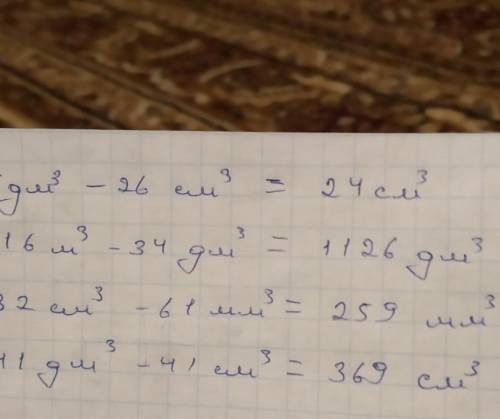 дм³ - 26 см³ = 24 см³
16 м³ - 34 дм³ = 1126 дм³
32 см³ - 61 мм³ = 259 мм³
41 дм³ - 41 см³ = 369 см³